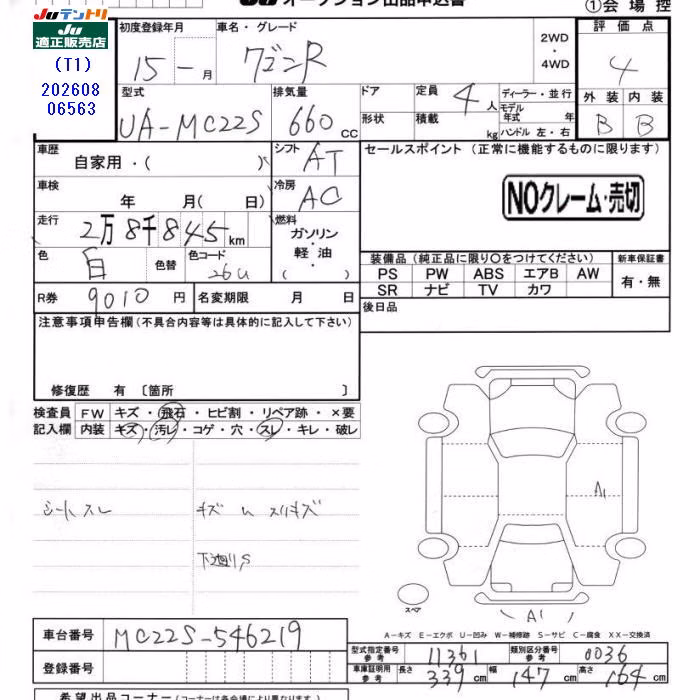 JUテントリ JU オークション出品申込書 ①会場控
JU適正販売店
(T1)
202608
06563
初度登録年月 車名・グレード 2WD・4WD 評価点
15 一 月 ワゴンR 4
型式 排気量 ドア 定員 4人 ディーラー・並行 外装 内装
UA-MC22S 660cc 形状 積載 kg モデル年式 年 B B
ハンドル 左・右
車歴 自家用・( ) シフト AT セールスポイント(正常に機能するものに限ります)
車検 年 月( 日) 冷房 AC NOクレーム・売切
走行 2万8千845km 燃料 ガソリン・軽油・( )
色 白 色替 色コード 26U 装備品(純正品に限り○をつけてください) 新車保証書
PS PW ABS エアB AW 有・無
SR ナビ TV カワ
R券 9010円 名変期限 月 日 後日品
注意事項申告欄(不具合内容等は具体的に記入して下さい)
修復歴 有 〔箇所 〕
検査員 FW キズ・飛石・ヒビ割・リペア跡・×要
記入欄 内装 キズ・汚レ・コゲ・穴・スレ・キレ・破レ
シートスレ キズ U スリキズ A1
下廻りS
スペア A1
A-キズ E-エクボ U-凹み W-補修跡 S-サビ C-腐食 XX-交換済
車台番号 MC22S-546219
型式指定番号 参考 11361 類別区分番号 参考 0036
登録番号 車庫証明用 参考 長さ 339cm 幅 147cm 高さ 164cm
希望出品コーナー(コーナーは各会場により異なります)